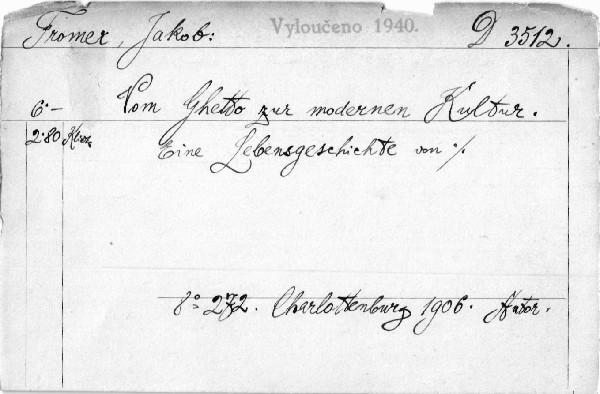 Fromer, Jakob: Vyloučeno 1940. D 3512.
6·— Vom Ghetto zur modernen Kultur.
2·80 Eine Lebensgeschichte von ·/.
8° 272. Charlottenburg 1906. Autor.